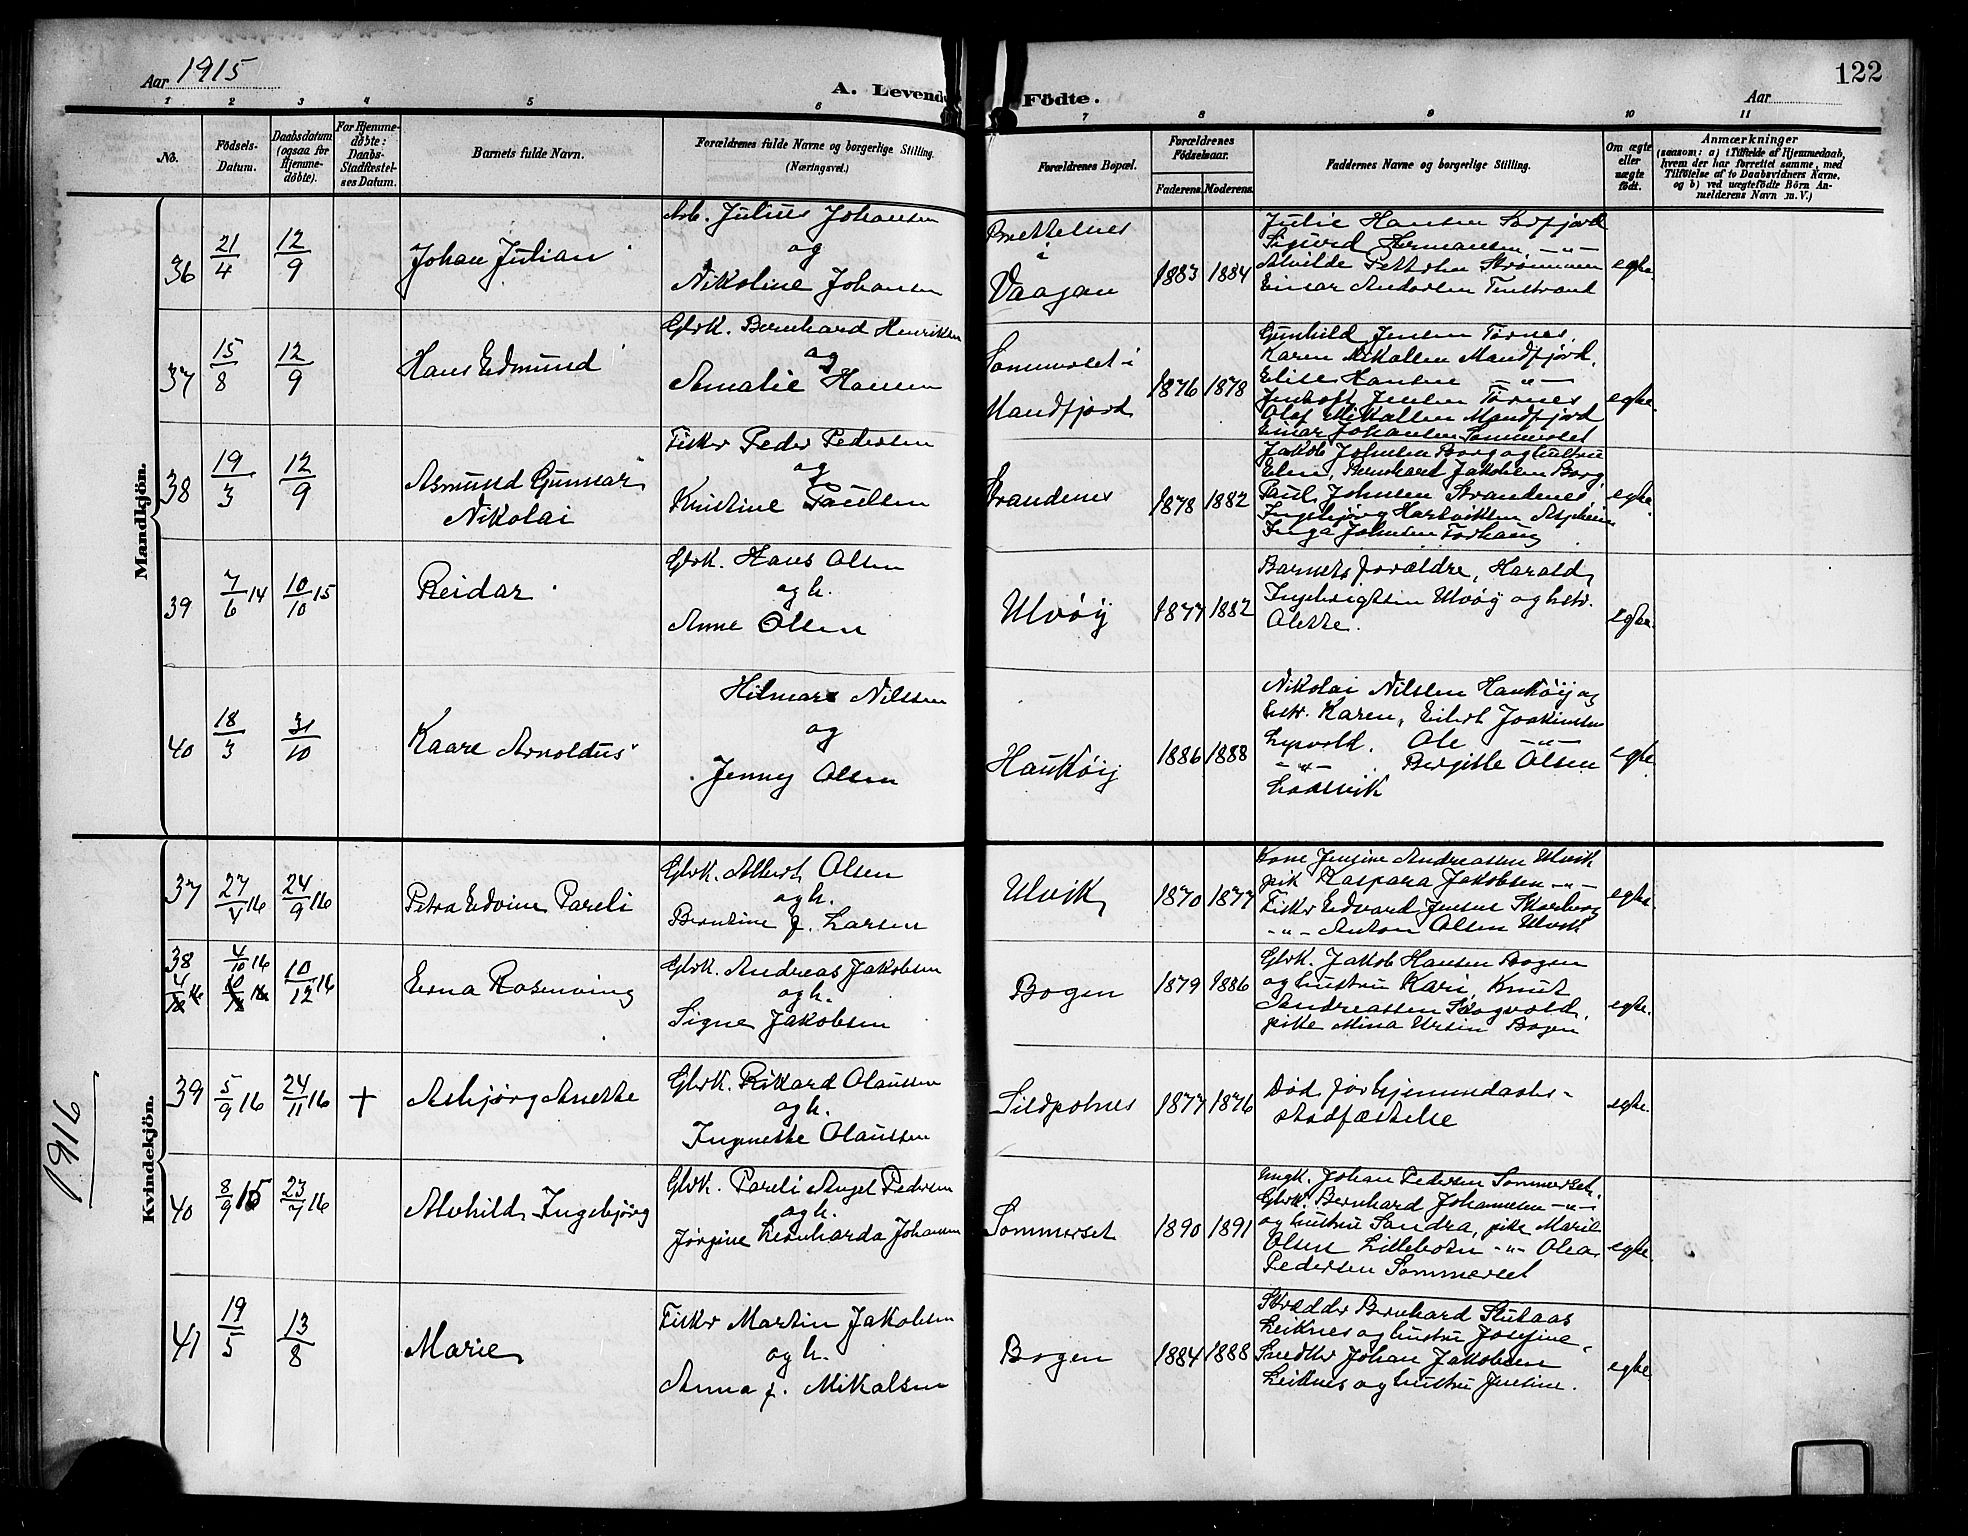 Aar 1915
A. Levende
Födte.
Aar
122
1 2 3 4 5 6 7 8 9 10 11
No.
Födsels-
Datum.
Daabsdatum
(ogsaa for
Hjemme-
døbte).
For Hjemme-
døbte:
Daabs-
Stadfæstel-
ses Datum.
Barnets fulde Navn.
Forældrenes fulde Navne og borgerlige Stilling.
(Næringsvei.)
Forældrenes Bopæl.
Forældrenes
Födselsaar.
Faderens. Moderens.
Faddernes Navne og borgerlige Stilling.
Om ægte
eller
uægte
födt.
Anmærkninger
(saasom: a) i Tilfælde af Hjemmedaab,
hvem der har forrettet samme, med
Tilföielse af to Daabsvidners Navne,
og b) ved uægtefödte Börn An-
melderens Navn m. V.)
Mandkjön.
36
21/4
12/9
Johan Julian
Arb. Julius Johansen
og
Nikoline Johansen
Brettesnes
i
Vaagan
1883 1884
Julie Hansen Kofjord
Sigurd Hermansen -"-
Alvilde Pettersen Strømmen
Einar Andersen Finstrand
egte
37
15/8
12/9
Hans Edmund
Gbrk. Bernhard Henriksen
og
Amalie Hansen
Sommerset i
Mandfjord
1876 1878
Gunhild Jensen Tørnes,
Karen Mikalsen Mandfjord,
Elise Hansen -"-
Jenhoft Jensen Tørnes
Olaf Mikalsen Mandfjord
Einar Johansen Sommerset
egte.
38
19/3
12/9
Asmund Gunnar
Nikolai
Fisker Peder Pedersen
og
Kristine Paulsen
Strandenes
1878 1882
Jakob Johnsen Borg og hustru
Elen, Bernhard Jakobsen Borg,
Paul Johnsen Strandenes,
Ingebjørg Hartviksen
Inga Johnsen Forhaug
egte.
39
7/6 14
10/10 15
Reidar
Gbrk. Hans Olsen
og h.
Anne Olsen
Ulvøy
1877 1882
Barnets forældre, Harald
Ingebrigtsen Ulvøy og hstr.
Alette.
egte.
40
18/3
31/10
Kaare Arnoldus
Hilmar Nilssen
og
Jenny Olsen
Haukøy
1886 1888
Nikolai Nilssen Haukøy og
hstr. Karen, Eilert Joakimsen
Ole -"-
-"- Bergitte Olsen
egte.
1916
Kvindekjön.
37
27/V 16
24/9 16
Petra Edvine Pareli
Gbrk. Albert Olsen
og h.
Berntine f. Larsen
Ulvik
1870 1877
Kone Jensine Andreassen Ulvik
pik Kaspara Jakobsen -"-
Fisker Edvard Jensen
-"- Anton Olsen Ulvik
egte.
38
4/10 16
10/12 16
Erna Rosenving
Gbrk. Andreas Jakobsen
og h.
Signe Jakobsen
Bogen
1879 1886
Gbrk. Jakob Hansen Bogen
og hustru Kari, Knut
Andreassen Skogvold,
pike Mina Ursin Bogen
egte.
39
5/9 16
24/11 16
+
Asbjørg Anette
Gbrk. Rikard Olaussen
og h.
Inganette Olaussen
Sildpolnes
1877 1876
Død før hjemmedaabs-
stadfæstelse
egte.
40
8/9 15
23/7 16
Alvhild Ingebjørg
Gbrk. Pareli Angel Pedersen
og h.
Jørgine Leonharda Johansen
Sommerset
1890 1891
Ungk. Johan Pedersen Sommerset.
Gbrk. Bernhard Johannesen -"-
og hustru Sandra, pike Marie
Olsen -"- Olea
Pedersen Sommerset
egte.
41
19/5
13/8
Marie
Fisker Martin Jakobsen
og h.
Anna f. Mikalsen
Bogen
1884 1888
Skrædder Bernhard
Leiknes og hustru Josefine,
Snedker Johan Jakobsen
Leiknes og hustru Jensine.
egte